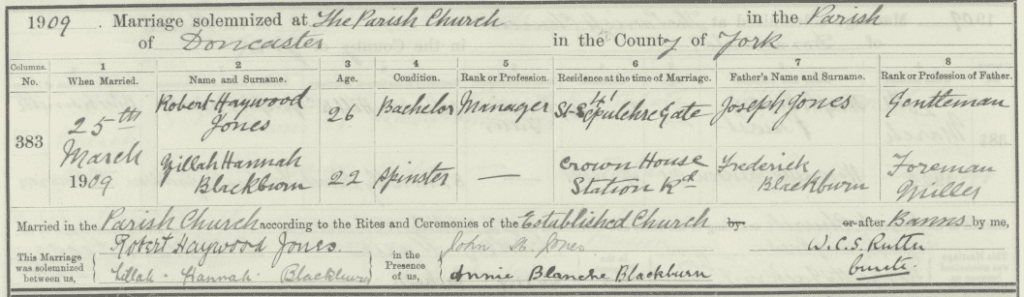 1909. Marriage solemnized at The Parish Church in the Parish
of Doncaster in the County of York
Columns. 1 2 3 4 5 6 7 8
No. When Married. Name and Surname. Age. Condition. Rank or Profession. Residence at the time of Marriage. Father's Name and Surname. Rank or Profession of Father.
383
25th March 1909
Robert Haywood Jones 26 Bachelor Manager 41 St Sepulchre Gate Joseph Jones Gentleman
Zillah Hannah Blackburn 22 Spinster — Crown House Station Rd Frederick Blackburn Foreman Miller
Married in the Parish Church according to the Rites and Ceremonies of the Established Church by or after Banns by me,
This Marriage was solemnized between us,
Robert Haywood Jones.
Zillah Hannah Blackburn
in the Presence of us,
John Jones
Annie Blanche Blackburn
W.C.S. Rutter
Curate.